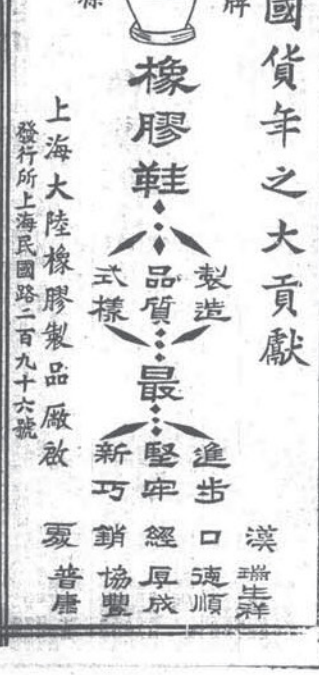 國貨年之大貢獻
牌
橡膠鞋
製造
品質
式樣
最
進步
堅牢
新巧
漢口經銷處
瑞生祥
德順
厚成
協豐
上海大陸橡膠製品廠啟
發行所上海民國路二百九十六號